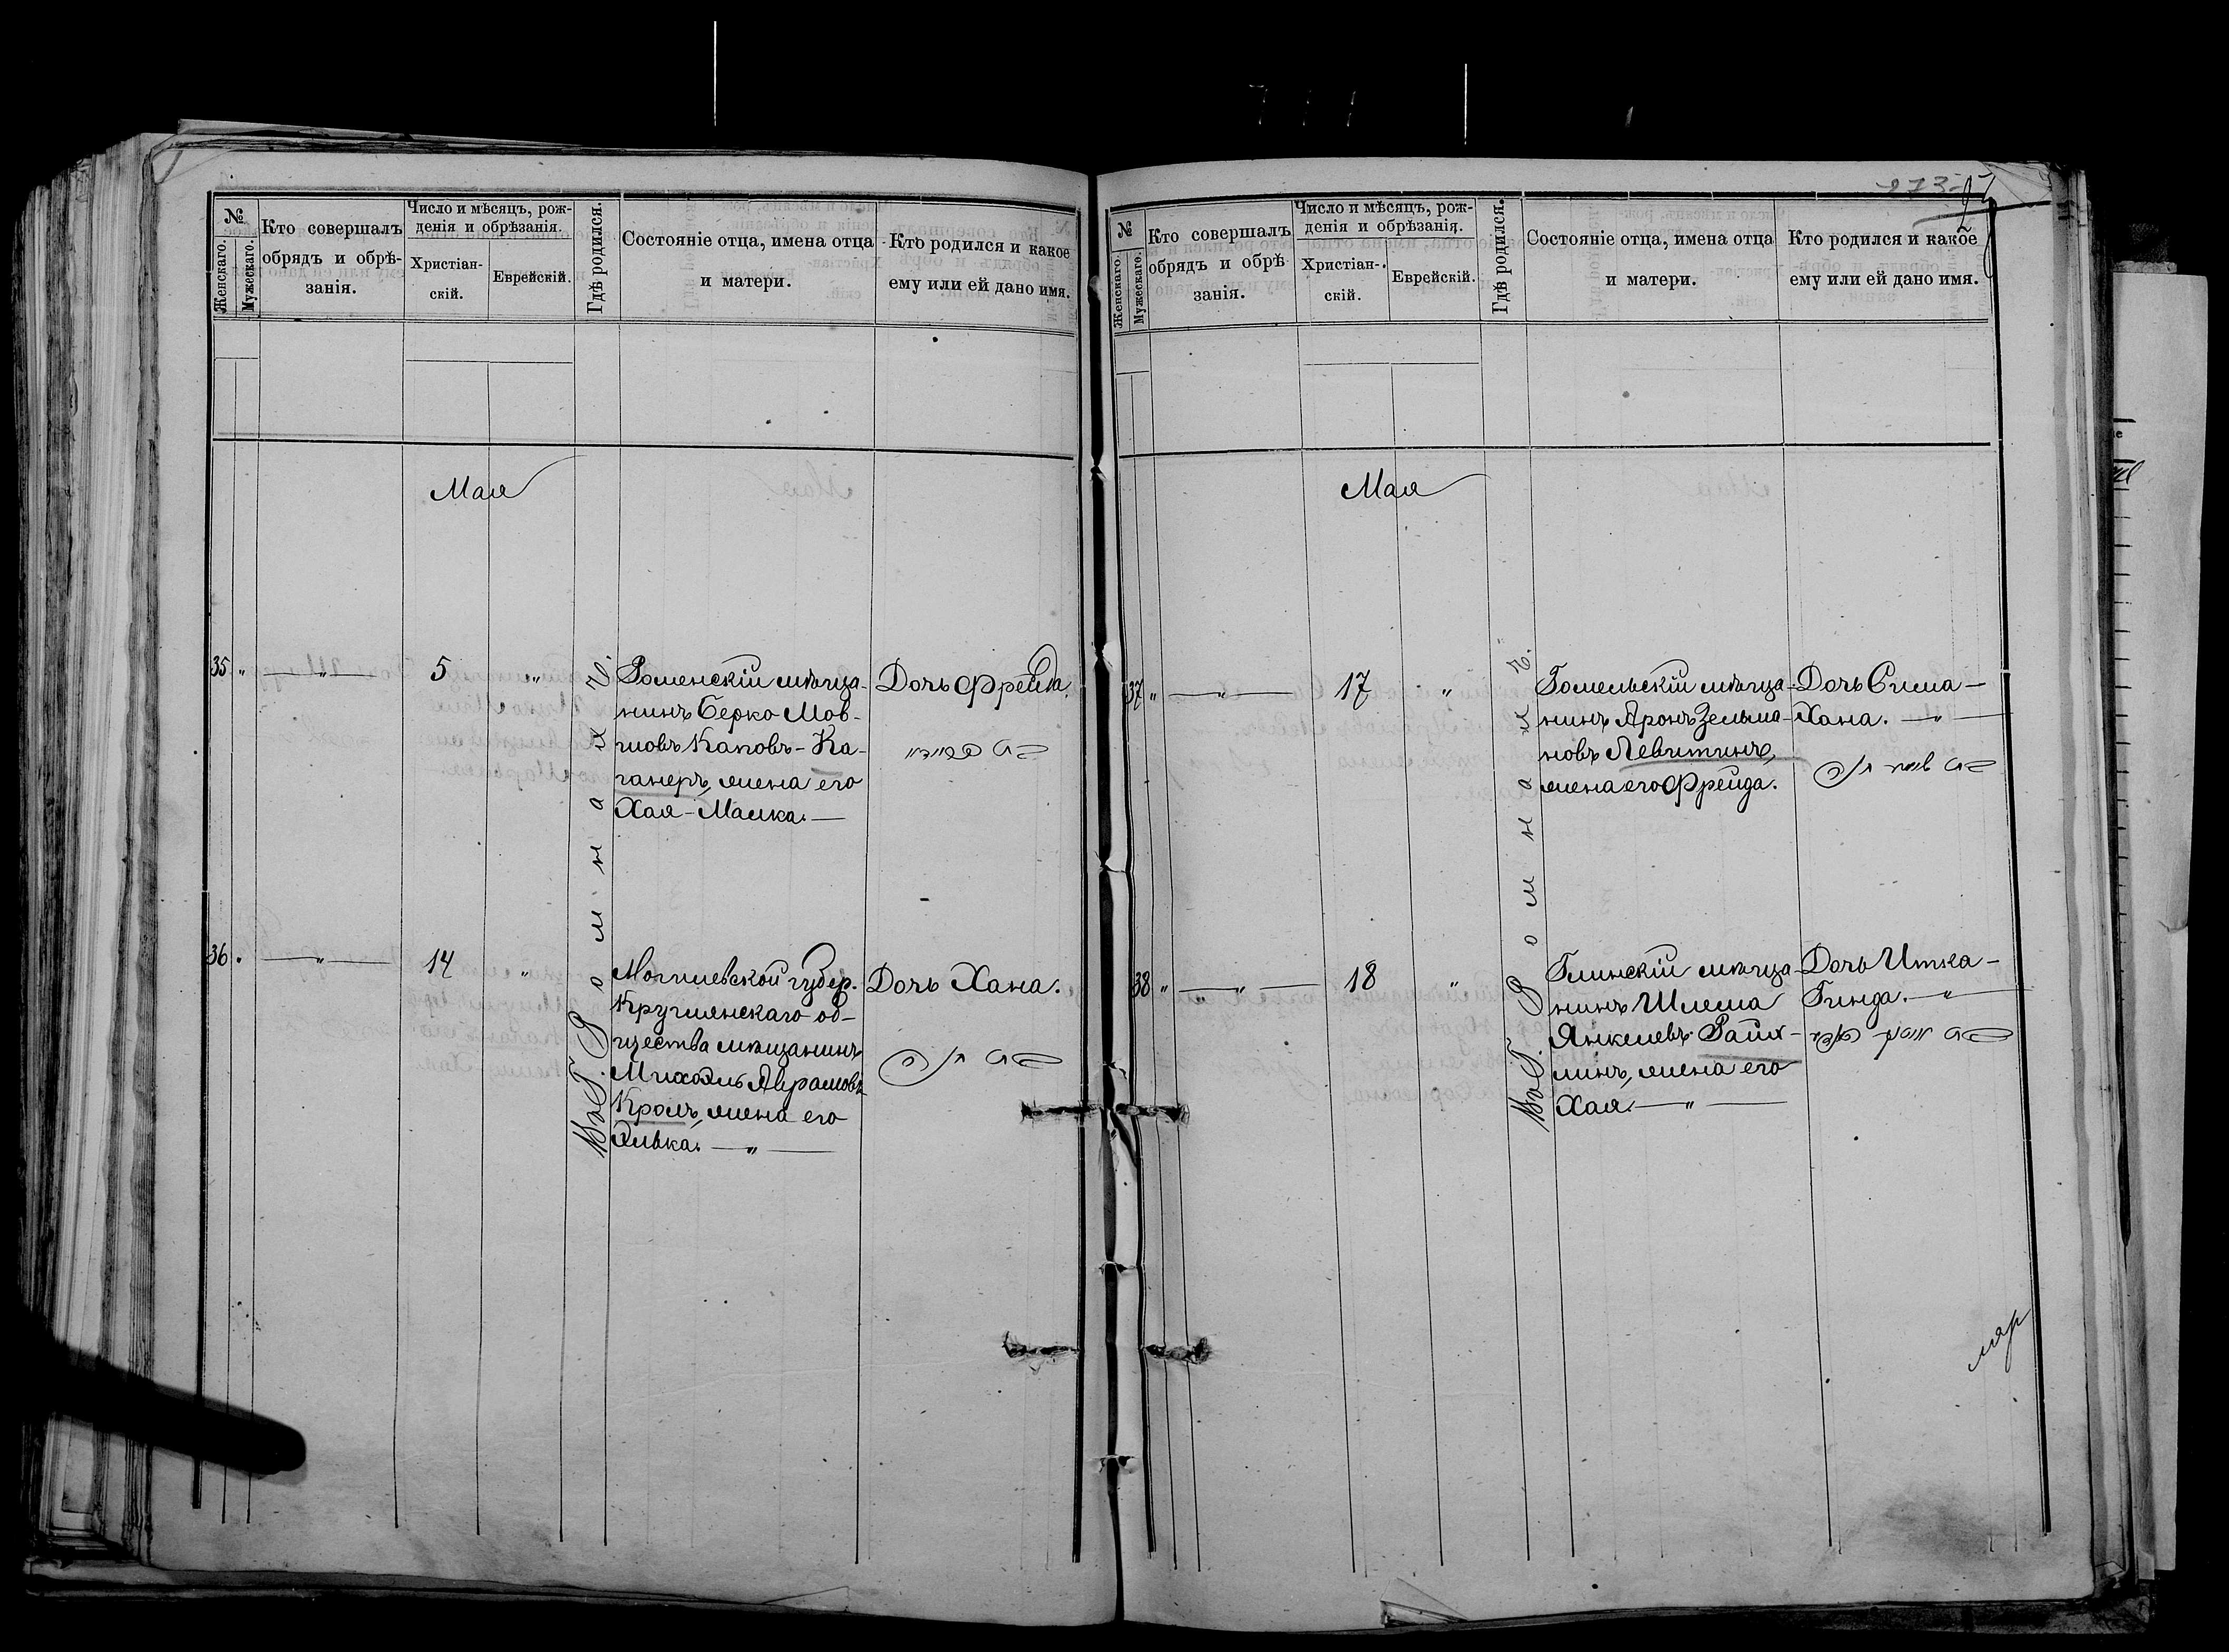 №
Женскаго.
Мужескаго.
Кто совершалъ
обрядъ и обрѣ-
занія.
Число и мѣсяцъ, рож-
денія и обрѣзанія.
Христіан-
скій.
Еврейскій.
Гдѣ родился.
Состояніе отца, имена отца
и матери.
Кто родился и какое
ему или ей дано имя.
Мая
35 " — " —
5
"
Роменскій мѣща-
нинъ Берко Мов-
шовъ Каповъ-Ка-
ганеръ, жена его
Хая-Малка. —
Дочь Фрейда.
בת
36 " — " —
14
"
Могилевской губер.
Круглянскаго об-
щества мѣщанинъ
Михаэль Аврамовъ
Кролъ, жена его
Дочь Хана.
בת חנה
Въ Г. Ромнахъ
№
Женскаго.
Мужескаго.
Кто совершалъ
обрядъ и обрѣ
занія.
Число и мѣсяцъ, рож-
денія и обрѣзанія.
Христіан-
скій.
Еврейскій.
Гдѣ родился.
Состояніе отца, имена отца
и матери.
Кто родился и какое
ему или ей дано имя.
Мая
37 " — " —
17
"
Гомельскій мѣща-
нинъ Аронъ Зельма-
новъ Левитинъ,
жена его Фрейда.
Дочь Сима-
Хана. — " —
בת חנה
38 " — " —
18
"
Глинскій мѣща-
нинъ Шлема
Янкелевъ Райх-
линъ, жена его
Хая. — " —
Дочь Итка-
Гинда. — " —
בת
Въ Г. Ромнахъ